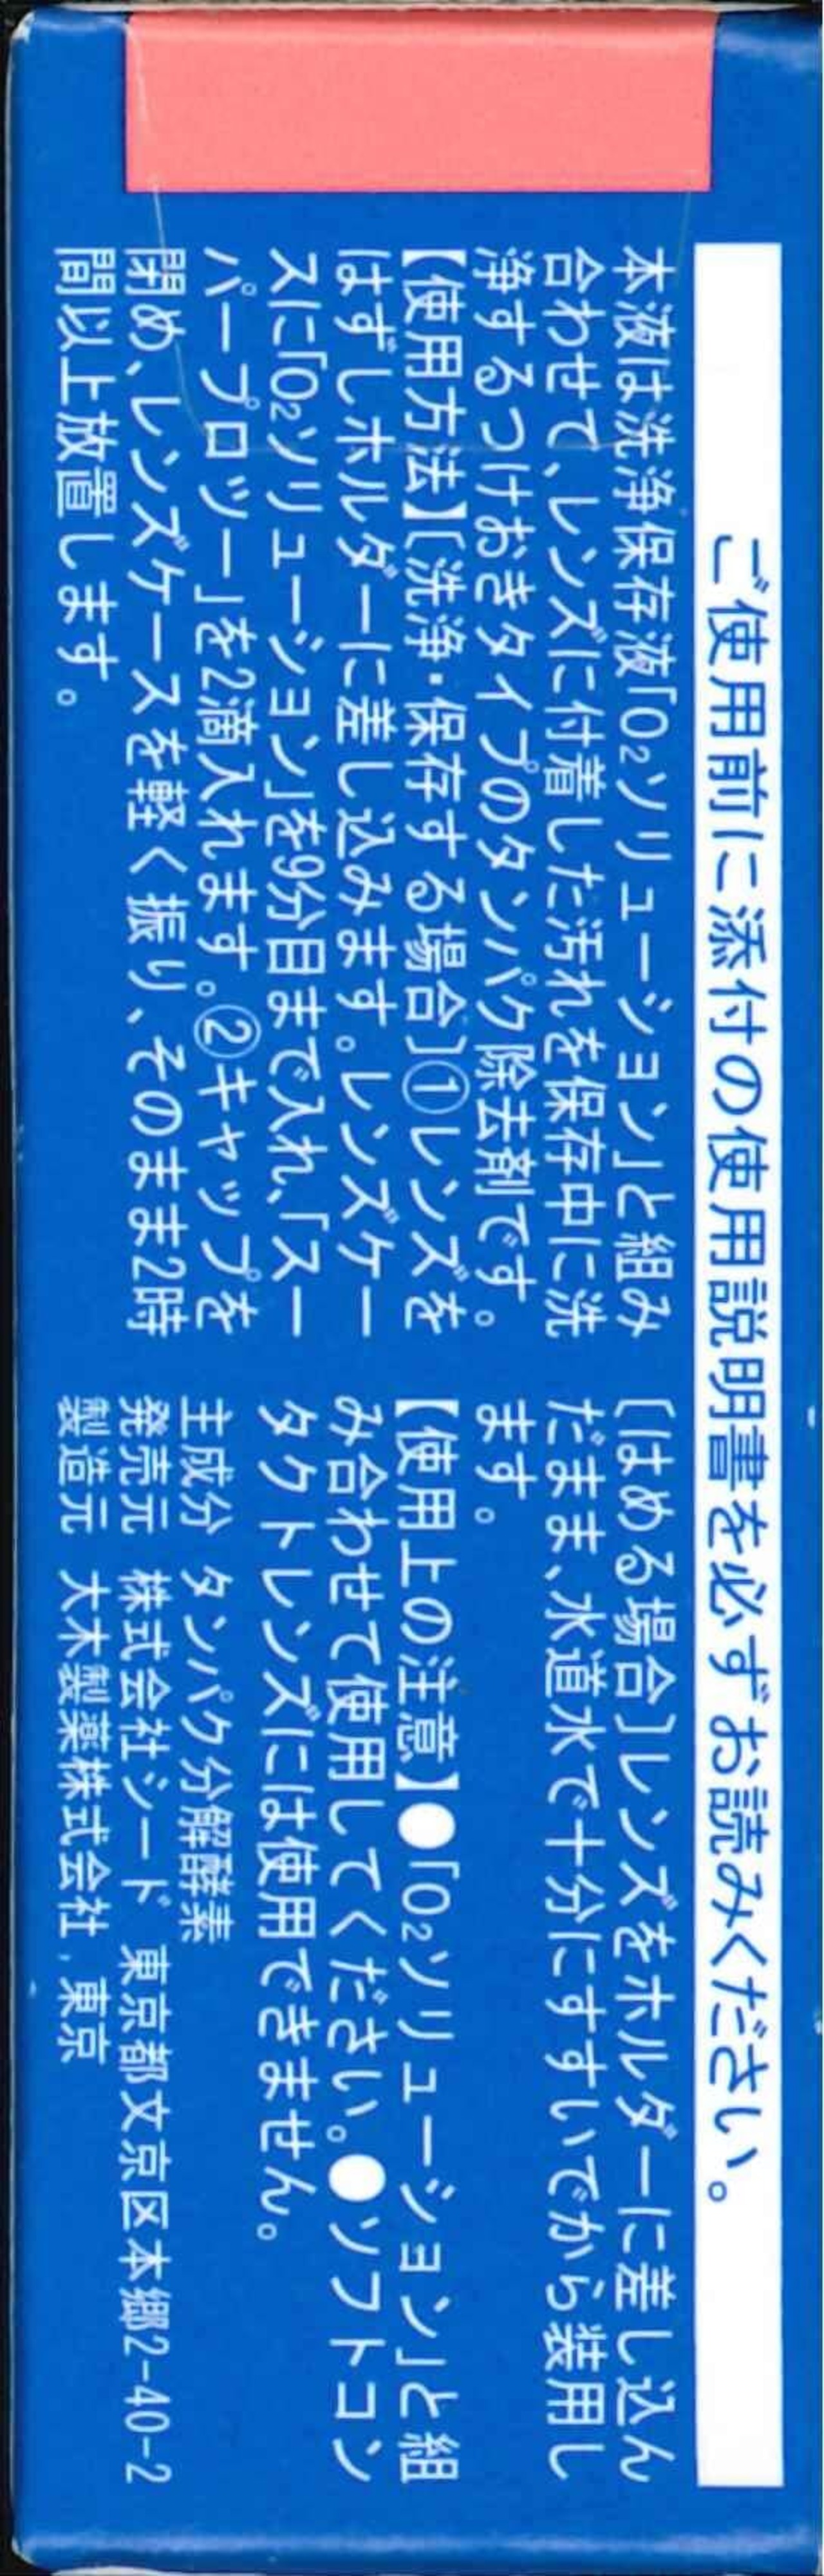 ご使用前に添付の使用説明書を必ずお読みください。
本液は洗浄保存液「O₂ソリューション」と組み
合わせて、レンズに付着した汚れを保存中に洗
浄するつけおきタイプのタンパク除去剤です。
【使用方法】〔洗浄・保存する場合〕①レンズを
はずしホルダーに差し込みます。レンズケー
スに「O₂ソリューション」を9分目まで入れ、「スー
パープロツー」を2滴入れます。②キャップを
閉め、レンズケースを軽く振り、そのまま2時
間以上放置します。
〔はめる場合〕レンズをホルダーに差し込ん
だまま、水道水で十分にすすいでから装用し
ます。
【使用上の注意】●「O₂ソリューション」と組
み合わせて使用してください。●ソフトコン
タクトレンズには使用できません。
主成分 タンパク分解酵素
発売元 株式会社シード 東京都文京区本郷2-40-2
製造元 大木製薬株式会社，東京